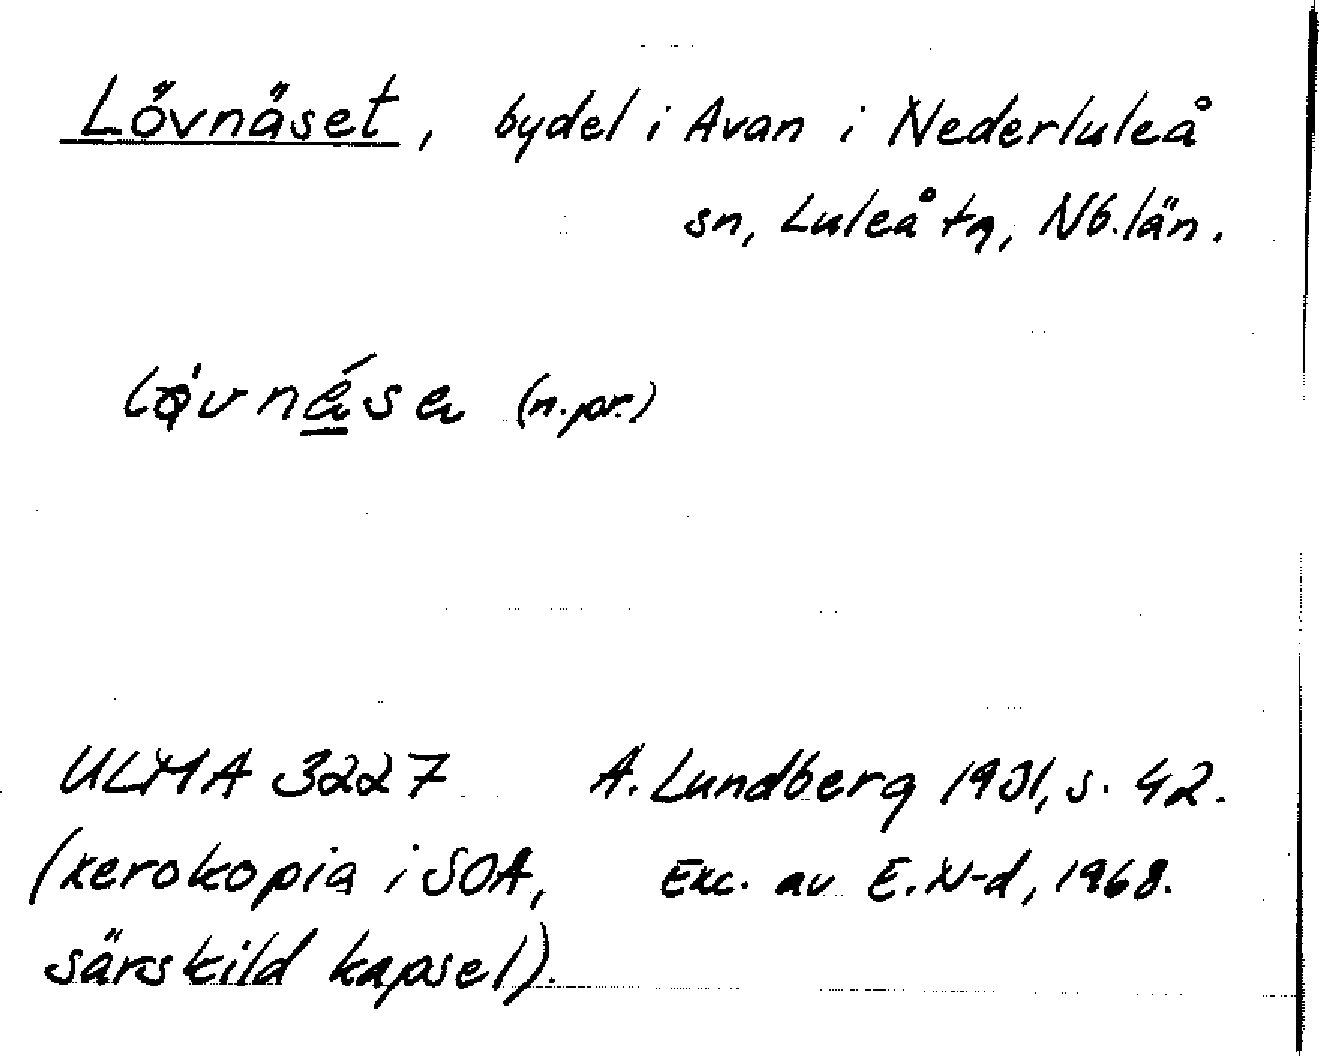 Lövnäset, bydel i Avan i Nederluleå
sn, Luleå tg, Nb. län.
(n. pr.)
ULMA 3227 A. Lundberg 1931, s. 42.
(xerokopia i SOA, Exc. av E. N-d, 1968.
särskild kapsel).